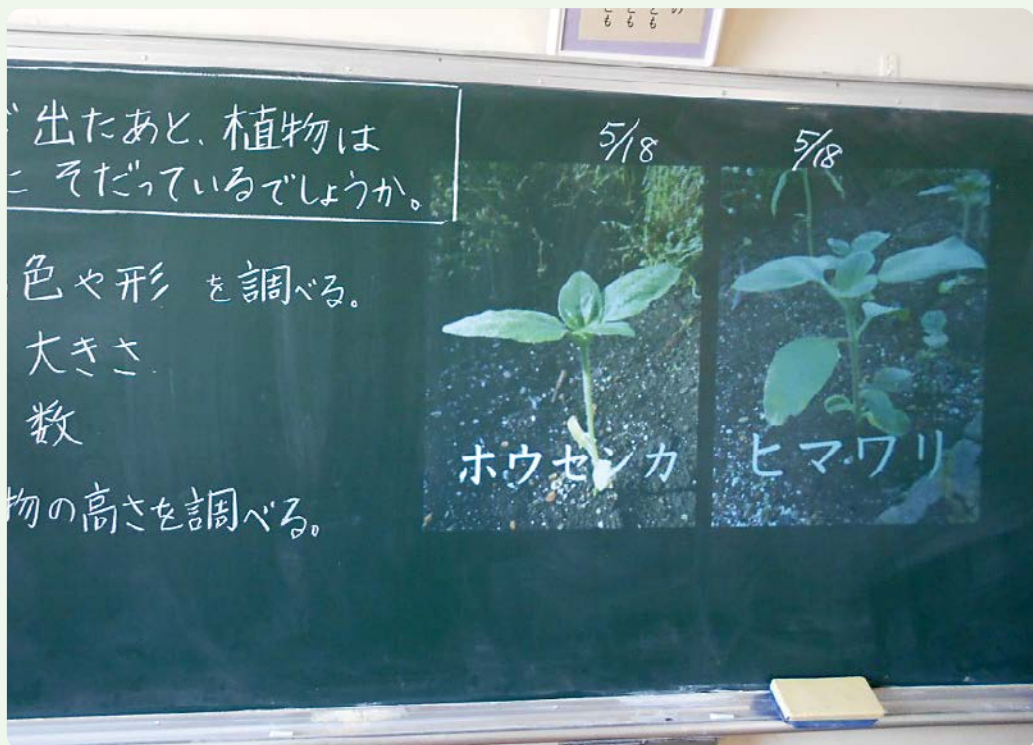 出たあと、植物は
そだっているでしょうか。
色や形 を調べる。
大きさ
数
物の高さを調べる。
5/18
5/18
ホウセンカ
ヒマワリ